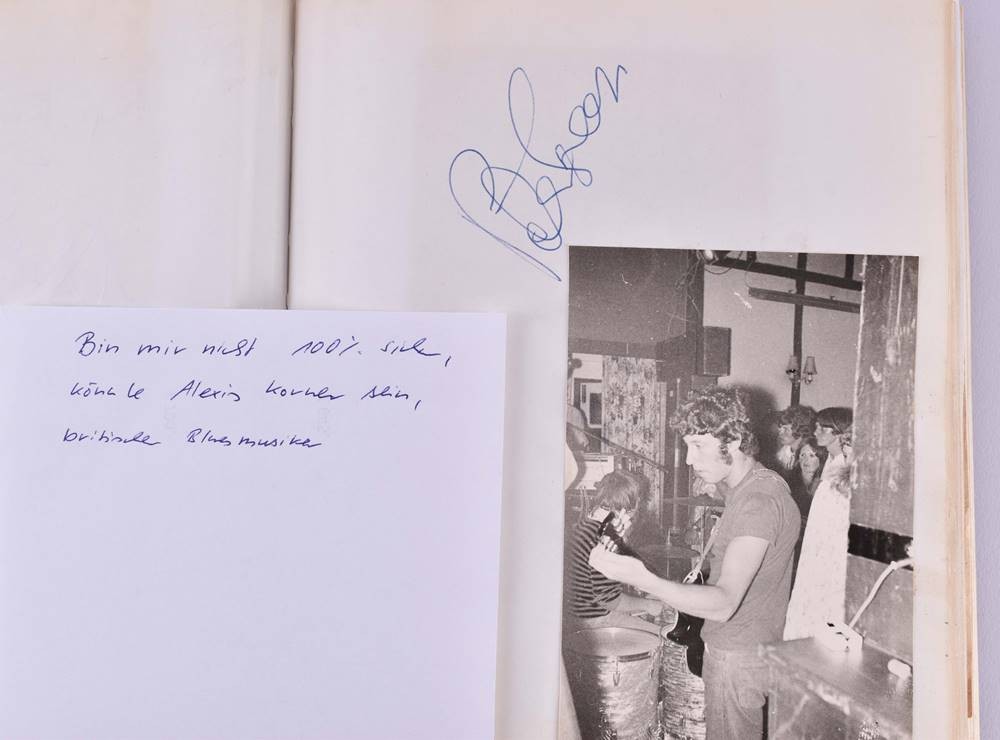 Bin mir nicht 100% sicher,
könnte Alexis Korner sein,
britischer Bluesmusiker